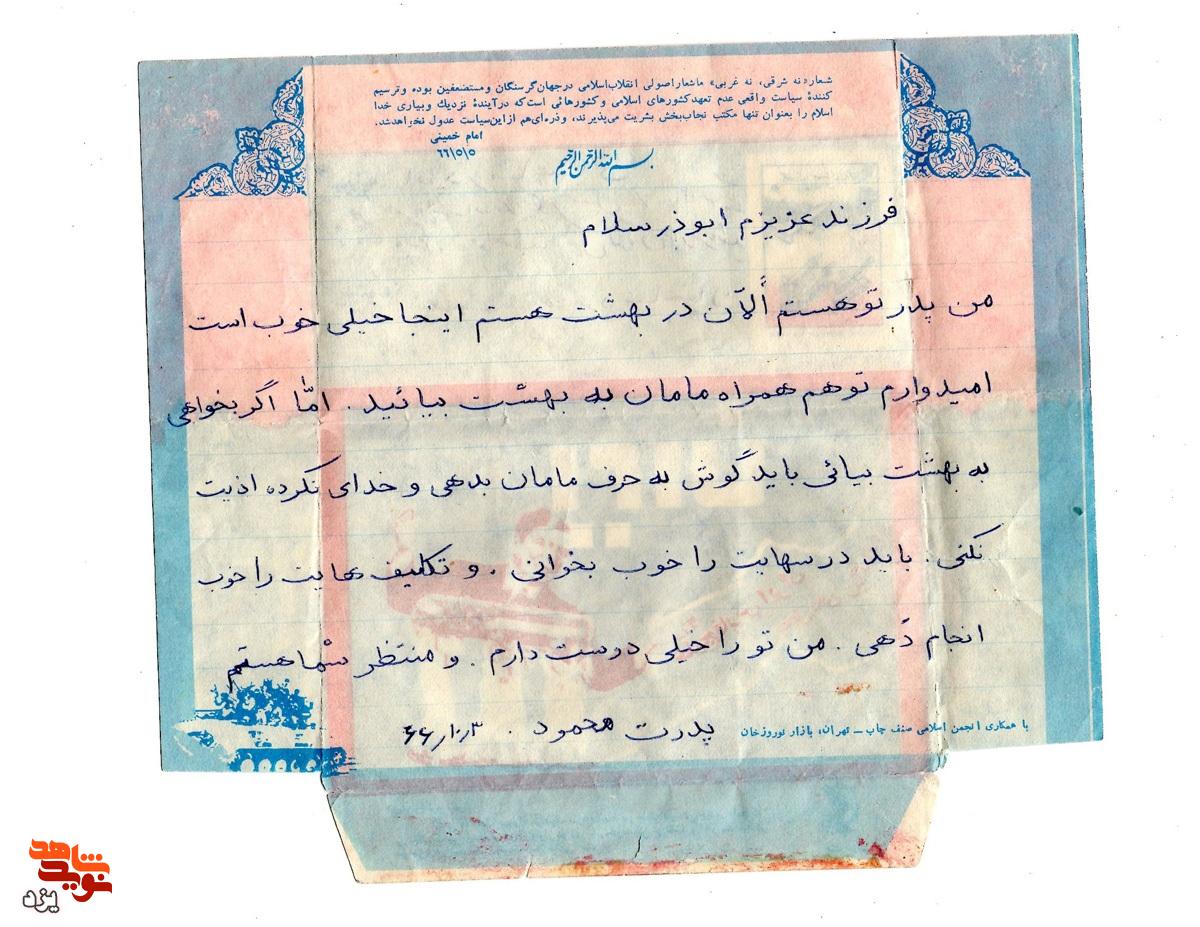 شعار «نه شرقی، نه غربی» ما شعار اصولی انقلاب اسلامی در جهان گرسنگان و مستضعفین بوده و ترسیم
کنندهٔ سیاست واقعی عدم تعهد کشورهای اسلامی و کشورهائی است که در آیندهٔ نزدیك و بیاری خدا
اسلام را بعنوان تنها مکتب نجات‌بخش بشریت می‌پذیرند، و ذره‌ای هم از این سیاست عدول نخواهد شد.
امام خمینی
۶۶/۵/۵
بسم الله الرحمن الرحیم
فرزند عزیزم ابوذر سلام
من پدر تو هستم ألآن در بهشت هستم اینجا خیلی خوب است
امیدوارم تو هم همراه مامان به بهشت بیائید. امّا اگر بخواهی
به بهشت بیائی باید گوش به حرف مامان بدهی و خدای نکرده اذیت
نکنی. باید درسهایت را خوب بخوانی. و تکلیف هایت را خوب
انجام دَهی. من تو را خیلی درست دارم. و منتظر شما هستم
پدرت محمود. ۶۶/۱۰/۳
با همکاری انجمن اسلامی صنف چاپ ـ تهران، بازار نوروزخان
نوید شاهد
یزد